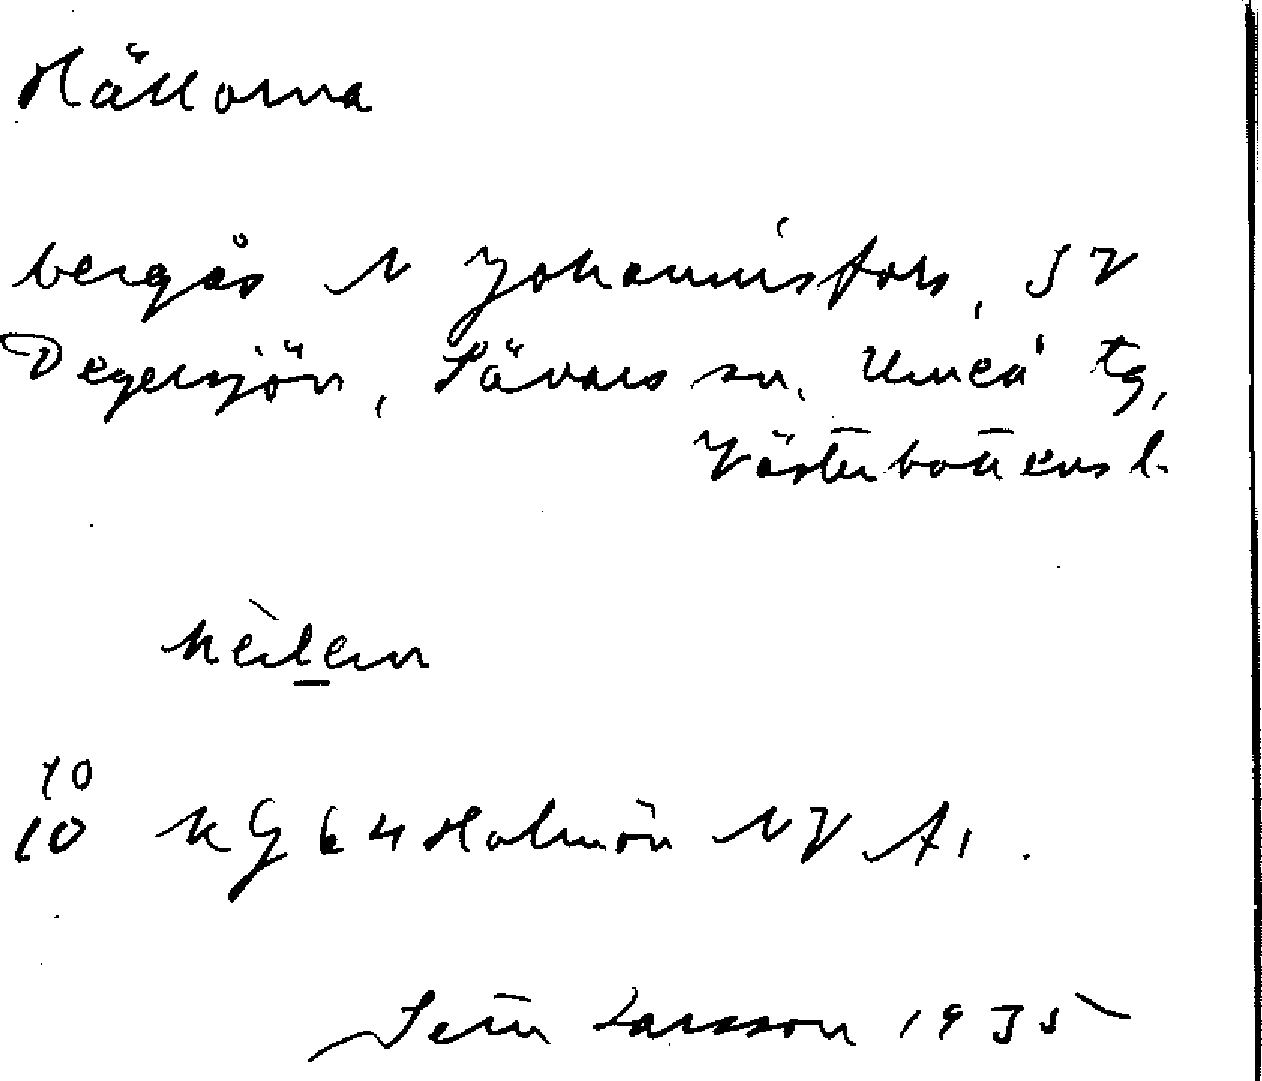 Hällorna
bergås N Johannisfors, SV
Degersjön, Sävars sn, Umeå tg,
Västerbottens l.
10
10 KG 64 Holmön NV A1.
Seth Larsson 1935